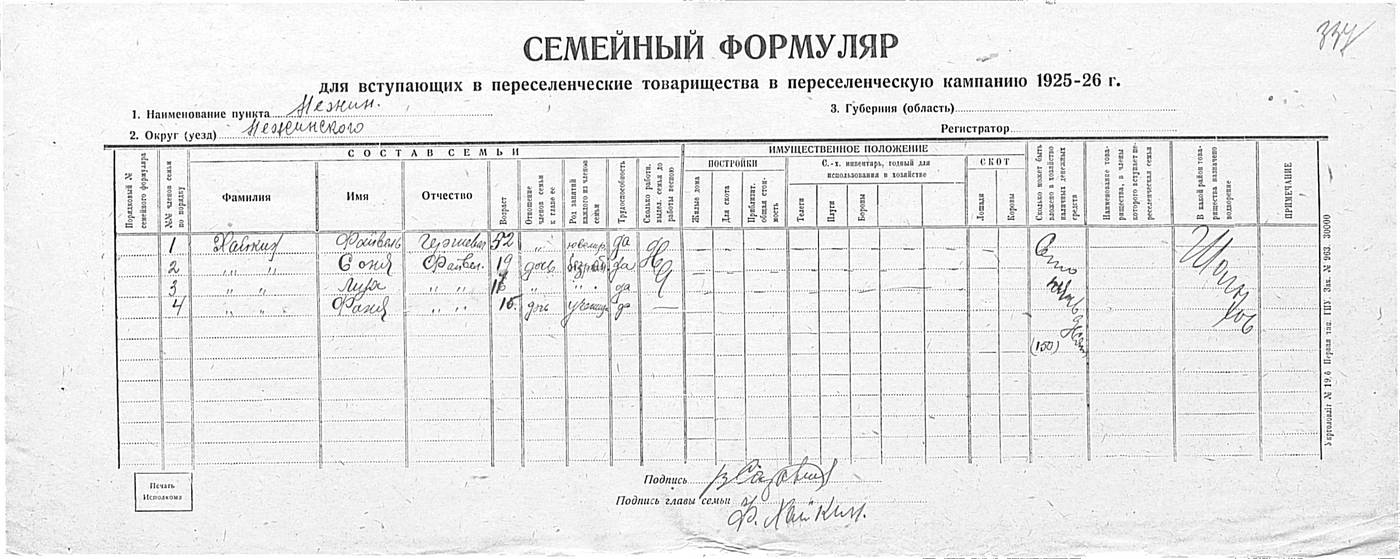 337
СЕМЕЙНЫЙ ФОРМУЛЯР
для вступающих в переселенческие товарищества в переселенческую кампанию 1925-26 г.
1. Наименование пункта Нежин.
3. Губерния (область)
2. Округ (уезд) Нежинского
Регистратор
Порядковый № семейного формуляра
№№ членов семьи по порядку
СОСТАВ СЕМЬИ
Фамилия
Имя
Отчество
Возраст
Отношение членов семьи к главе ее
Род занятий каждого из членов семьи
Трудоспособность
Сколько работн. выдел. семья до работы весною
ИМУЩЕСТВЕННОЕ ПОЛОЖЕНИЕ
ПОСТРОЙКИ
Жилые дома
Для скота
Приблизит. общая стоимость
С.-х. инвентарь, годный для использования в хозяйстве
Телеги
Плуги
Бороны
СКОТ
Лошади
Коровы
Сколько может быть вложено в хозяйство наличных денежных средств
Наименование товарищества, в члены которого вступает переселенческая семья
В какой район товарищества назначено водворение
ПРИМЕЧАНИЕ
1 Хайкин Файвель Гершевич 52 " ювелир да
2 " " Соня Файвел. 19 дочь да
3 " " " " 16 " " да
4 " " Фаня " " 15. дочь ученица да —
Сто
(150)
Печать Исполкома
Подпись
Подпись главы семьи Ф. Хайкин.
Укрголовліт № 19.6 Перша тип. ГПУ. Зак. № 963. 30000